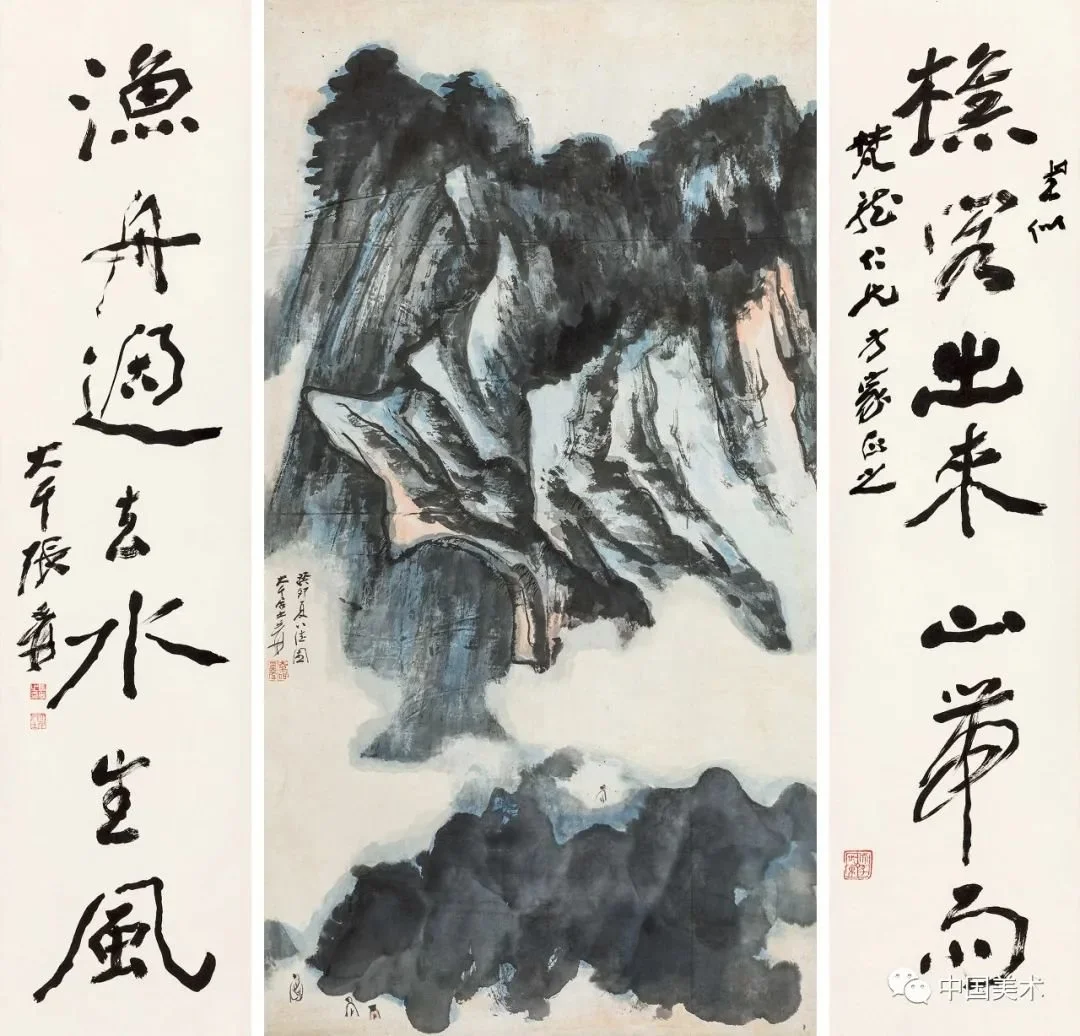 書似
樵客出來山帶雨
梵龍仁兄方家正之
癸卯夏八德園
大千居士爰
漁舟過去水生風
大千張爰
中国美术